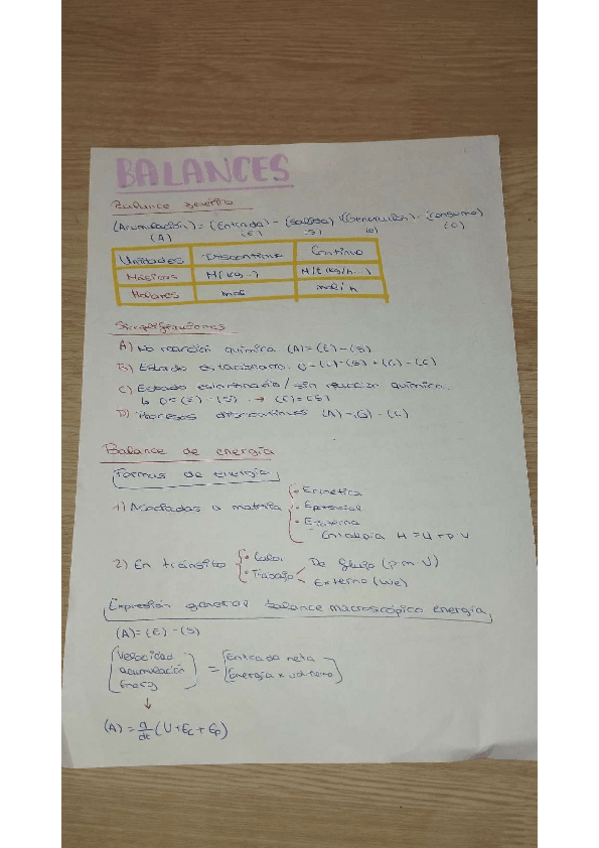 BALANCES
Balance
(Acumulación) = (Entrada) - (Salida) + (Generación) - (Consumo)
(A) (E) (S) (G) (C)
Unidades Discontinuo Continuo
Másicos M (kg...) M/t (kg/h...)
Molares mol mol/h
Simplificaciones
A) No reacción química (A) = (E) - (S)
B) Estado estacionario. 0 = (E) - (S) + (G) - (C)
C) Estado estacionario / sin reacción química.
↳ 0 = (E) - (S) → (E) = (S)
D) Procesos discontinuos (A) = (G) - (C)
Balance de energía
Formas de energía
1) Asociadas a materia
· E cinética
· E potencial
· E interna
Entalpía H = U + P V
2) En tránsito
· Calor
· Trabajo
De flujo (p m V)
Externo (We)
Expresión general balance macroscópico energía
(A) = (E) - (S)
Velocidad
acumulación
Energ
= Entrada neta
Energía x
(A) = d/dt (U + Ec + Ep)